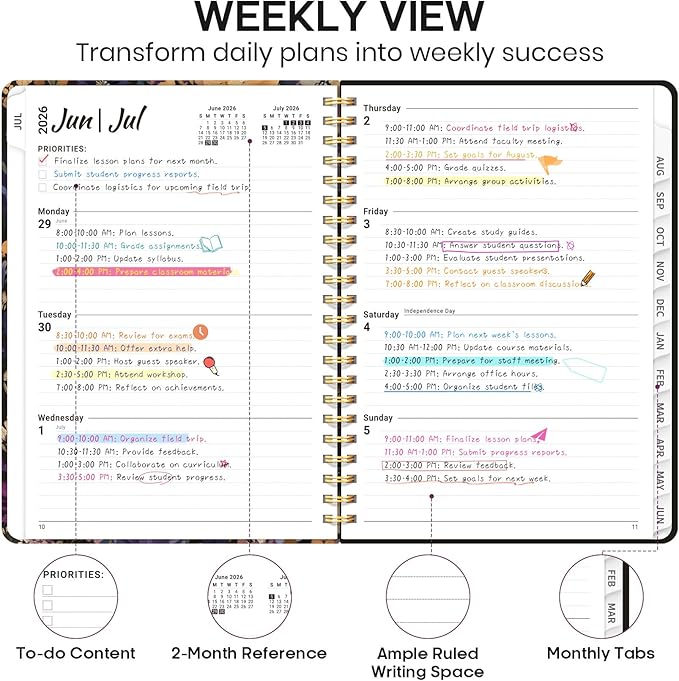 WEEKLY VIEW
Transform daily plans into weekly success
JUL
2026 Jun | Jul
June 2026
S M T W T F S
1 2 3 4 5 6
7 8 9 10 11 12 13
14 15 16 17 18 19 20
21 22 23 24 25 26 27
28 29 30
July 2026
S M T W T F S
1 2 3 4
5 6 7 8 9 10 11
12 13 14 15 16 17 18
19 20 21 22 23 24 25
26 27 28 29 30 31
PRIORITIES:
Finalize lesson plans for next month.
Submit student progress reports.
Coordinate logistics for upcoming field trip
Monday
29 June
8:00-10:00 AM: Plan lessons.
10:00-11:30 AM: Grade assignments.
1:00-2:00 PM: Update syllabus.
2:00-4:00 PM: Prepare classroom materia
Tuesday
30
8:30-10:00 AM: Review for exams.
10:00-11:30 AM: Offer extra help.
1:00-2:00 PM: Host guest speaker.
2:30-5:00 PM: Attend workshop.
7:00-8:00 PM: Reflect on achievements.
Wednesday
1 July
9:00-10:00 AM: Organize field trip.
10:30-11:30 AM: Provide feedback.
1:00-3:00 PM: Collaborate on curriculum
3:30-5:00 PM: Review student progress.
10
Thursday
2
9:00-11:00 AM: Coordinate field trip logistics.
11:30 AM-1:00 PM: Attend faculty meeting.
2:00-3:30 PM: Set goals for August.
4:00-5:00 PM: Grade quizzes.
7:00-8:00 PM: Arrange group activities.
Friday
3
8:30-10:00 AM: Create study guides.
10:30-11:30 AM: Answer student questions.
1:00-3:00 PM: Evaluate student presentations.
3:30-5:00 PM: Contact guest speakers.
7:00-8:00 PM: Reflect on classroom discussion
Saturday Independence Day
4
9:00-10:00 AM: Plan next week's lessons.
10:30 AM-12:00 PM: Update course materials.
1:00-2:00 PM: Prepare for staff meeting.
2:30-3:30 PM: Arrange office hours.
4:00-5:00 PM: Organize student files.
Sunday
5
9:00-11:00 AM: Finalize lesson plans
11:30 AM-1:00 PM: Submit progress reports.
2:00-3:00 PM: Review feedback.
3:30-4:00 PM: Set goals for next week.
11
AUG
SEP
OCT
NOV
DEC
JAN
FEB
MAR
APR
MAY
JUN
PRIORITIES:
To-do Content
June 2026
2-Month Reference
Ample Ruled
Writing Space
FEB
MAR
Monthly Tabs